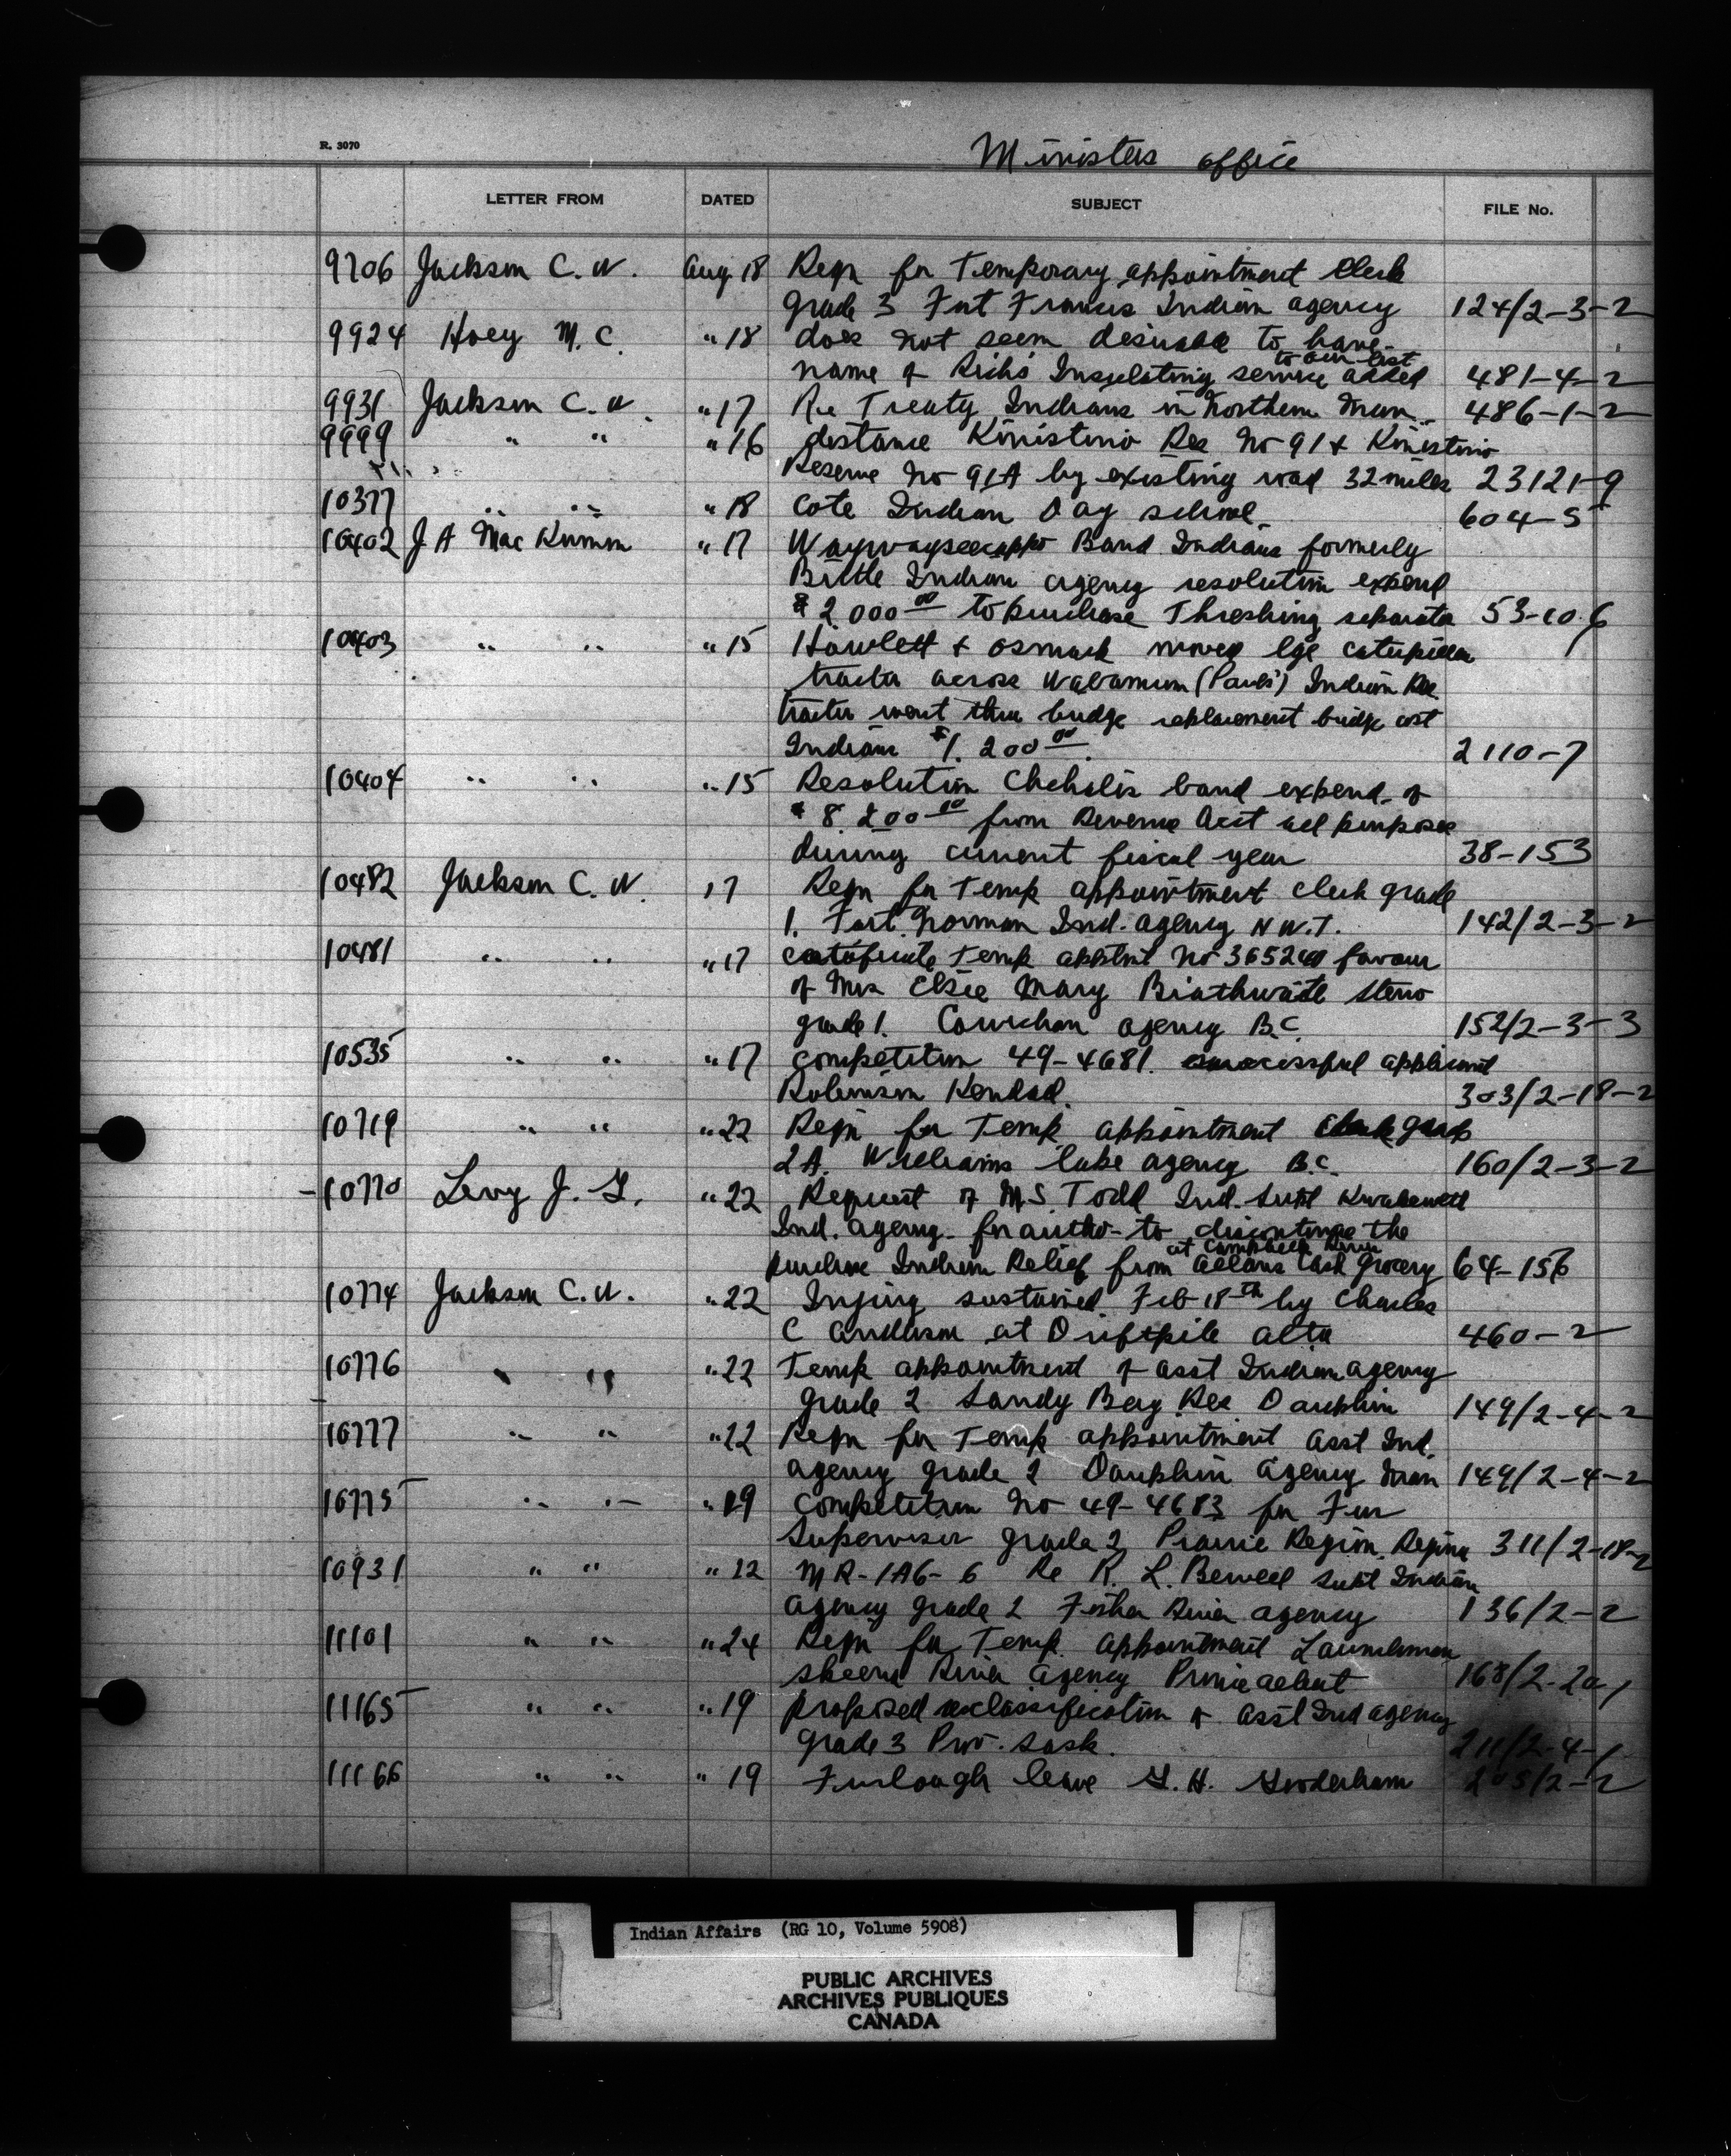 R. 3070
Ministers office
LETTER FROM DATED SUBJECT FILE No.
9706 Jackson C. W. Aug 18 Reqn for Temporary appointment Clerk
grade 3 Fort Frances Indian agency 124/2-3-2
9924 Hoey M. C. " 18 does not seem desirable to have
to our list
name of Rich's Insulating service added 481-4-2
9931 Jackson C. W. " 17 Re Treaty Indians in Northern Man. 486-1-2
9999 " " " 16 distance Kinistino Res No 91 & Kinistino
Reserve No 91A by existing road 32 miles 23121-9
10377 " " " 18 Cote Indian Day school 604-5
10402 J A Mac Kinnon " 17 Waywayseecappo Band Indians formerly
Birtle Indian agency resolution expend
$2,000 00 to purchase Threshing separator 53-10
10403 " " " 15 Howlett & moved lge caterpillar
tractor across Wabamum (Paul's) Indian Res.
tractor went thru bridge replacement bridge cost
Indians $1,200 00. 2110-7
10404 " " " 15 Resolution Chehalis band expend. of
$8,200 00 from Revenue Acct all purposes
during current fiscal year 38-153
10482 Jackson C. W. 17 Reqn for Temp appointment clerk grade
1. Fort Norman Ind. agency N W.T. 142/2-3-2
10481 " " " 17 certificate Temp apptmt No 365240 favour
of Mrs Elsie Mary Braithwaite Steno
grade 1. Cowichan agency B.C. 152/2-3-3
10535 " " " 17 competition 49-4681. successful applicant
Robinson Kendal. 303/2-18-2
10719 " " " 22 Reqn for Temp appointment Clerk grade
2A. Williams lake agency B.C. 160/2-3-2
-10770 Levy J. G. " 22 Request of M.S. Todd Ind. Supt Kwakewlth
Ind. agency for autho- to discontinue the
at Campbell River
purchase Indian Relief from Allans Cash Grocery 64-156
10774 Jackson C. W. " 22 Injury sustained Feb 18th by Charles
C Anderson at Driftpile alta 460-2
10776 " " " 22 Temp appointment of asst Indian agency
grade 2 Sandy Bay Res Dauphin 149/2-4-2
10777 " " " 22 Reqn for Temp appointment asst Ind.
agency grade 2 Dauphin agency Man 149/2-4-2
10775 " " " 19 competition No 49-4683 for Fur
Supervisor grade 2 Prairie Region, Regina 311/2-18-2
10931 " " " 22 MR-1A6-6 Re R. L. Supt Indian
agency grade 2 Fisher River agency 136/2-2
11101 " " " 24 Reqn for Temp. appointment Launchman
Skeena River agency Prince 168/2-20-1
11165 " " " 19 proposed reclassification of asst Ind agency
grade 3 Prov. Sask. 211/2-4-1
11166 " " " 19 Furlough leave G. H. Gooderham 205/2-2
Indian Affairs (RG 10, Volume 5908)
PUBLIC ARCHIVES
ARCHIVES PUBLIQUES
CANADA